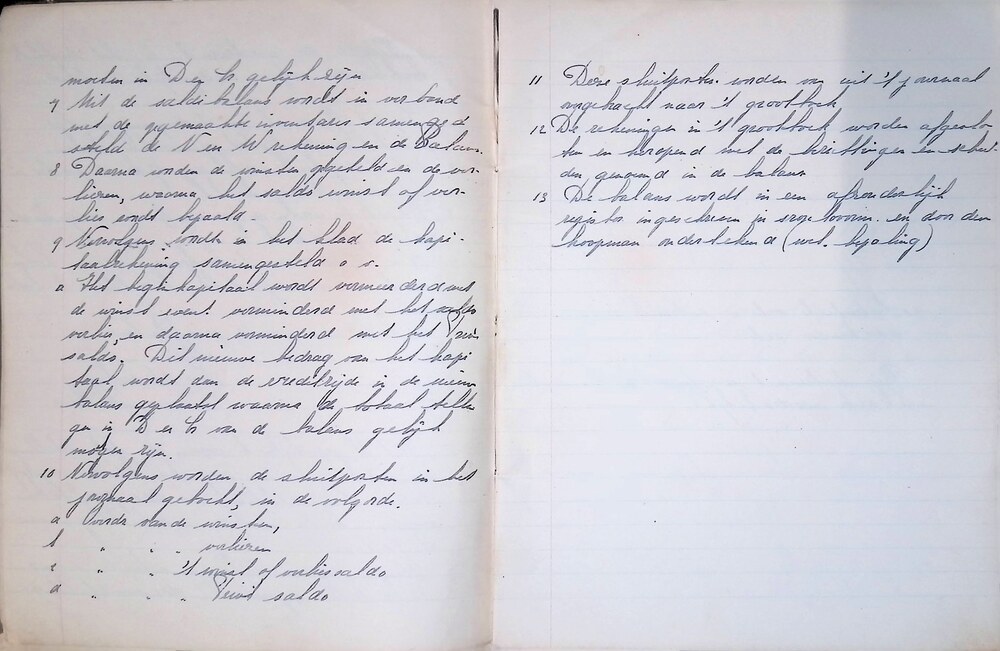 moeten in D en C gelijk zijn
7 Uit de saldibalans wordt in verband
met de opgemaakte inventaris samenge
steld de V en W rekening en de Balans.
8 Daarna worden de winsten opgeteld en de ver-
liezen, waarna het saldo winst of ver-
lies wordt bepaald.
9 Vervolgens wordt in het blad de kapi-
taalrekening samengesteld o v.
a Het beginkapitaal wordt vermeerderd met
de winst event. verminderd met het saldo
verlies, en daarna verminderd met het Privé
saldo. Dit nieuwe bedrag van het kapi
taal wordt dan de creditzijde in de nieuwe
balans geplaatst waarna de totaal tellin
gen in D en C van de balans gelijk
mogen zijn.
10 Vervolgens worden de sluitposten in het
journaal geboekt, in de volgorde.
a Eerste van de winsten,
b " " " verliezen
c " " 't winst of verliessaldo
d " " " Privé saldo
11 Deze sluitposten worden van uit 't journaal
overgebracht naar 't grootboek
12 De rekeningen in 't grootboek worden afgeslo-
ten en heropend met de bezittingen en schul-
den, genoemd in de balans
13 De balans wordt in een afzonderlijk
register ingeschreven in scontrovorm en door den
koopman ondertekend (wet. bepaling)